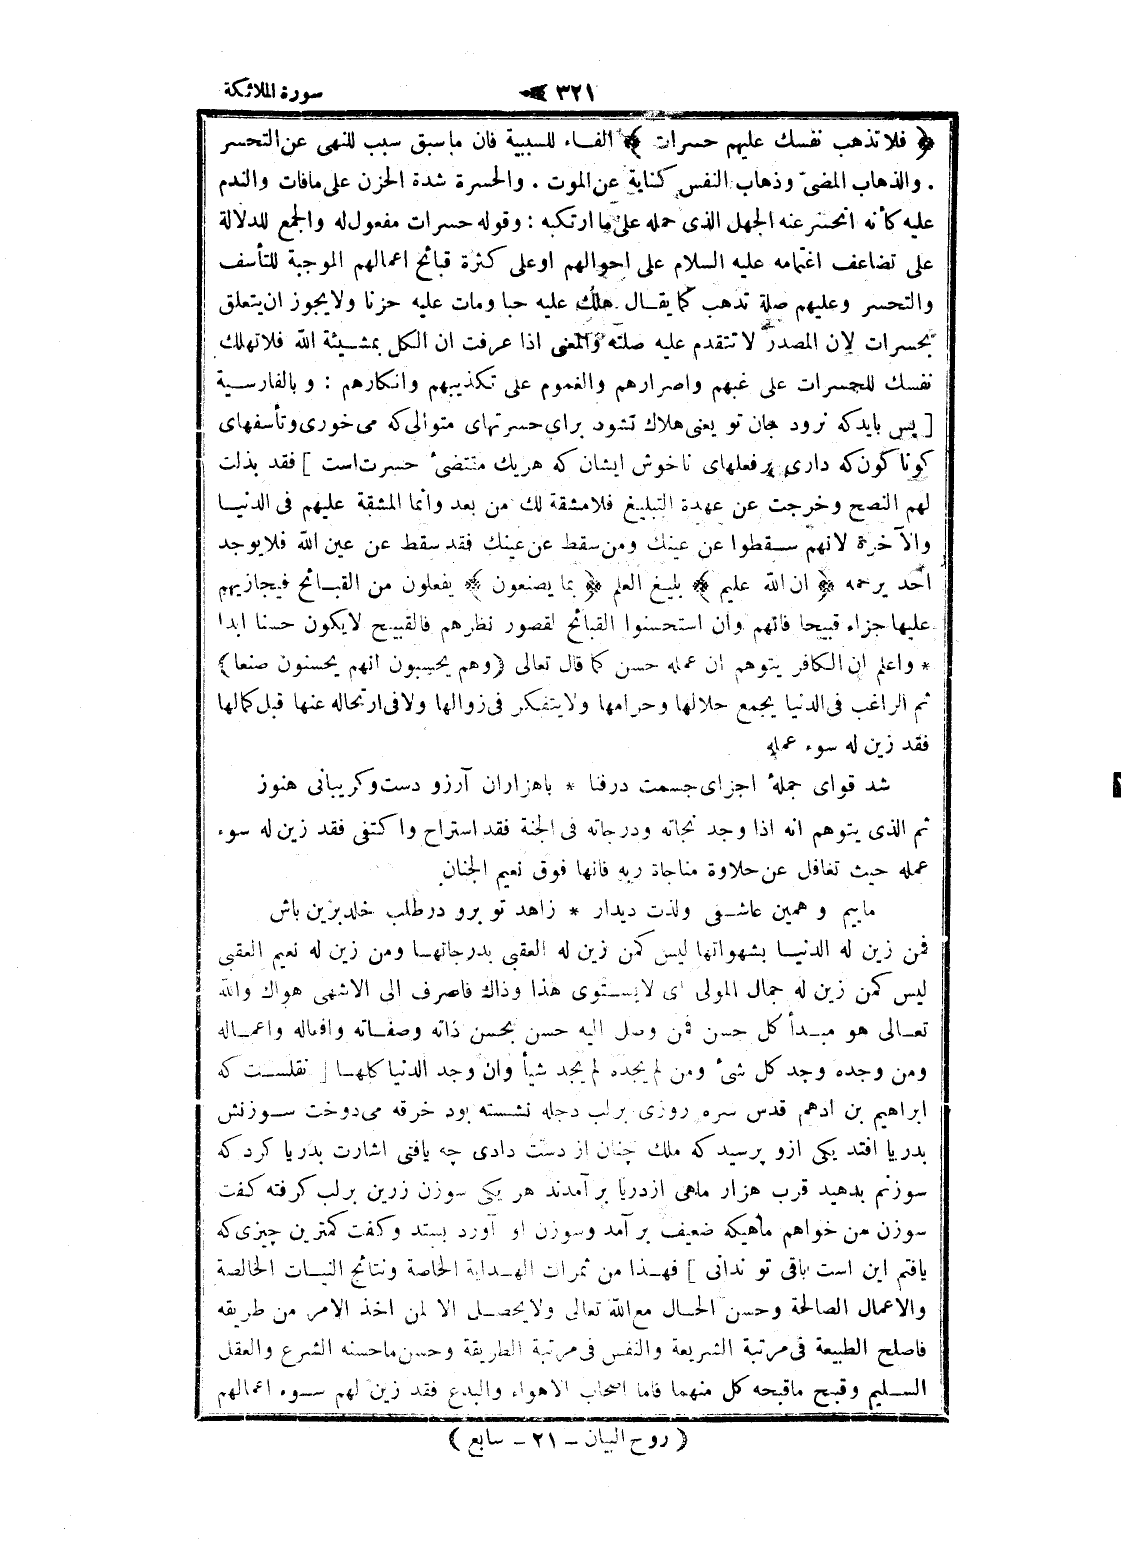 ٣٢١ سورة الملائكة
﴿ فلا تذهب نفسك عليهم حسرات ﴾ الفاء للسببية فان ماسبق سبب للنهى عن التحسر
. والذهاب المضىّ وذهاب النفس كناية عن الموت . والحسرة شدة الحزن على مافات والندم
عليه كأنه انحسر عنه الجهل الذى حمله على ما ارتكبه : وقوله حسرات مفعول له والجمع للدلالة
على تضاعف اغتمامه عليه السلام على احوالهم او على كثرة قبائح اعمالهم الموجبة للتأسف
والتحسر وعليهم صلة تذهب كما يقال هلك عليه حبا ومات عليه حزنا ولايجوز ان يتعلق
بحسرات لان المصدر لاتتقدم عليه صلته والمعنى اذا عرفت ان الكل بمشيئة الله فلاتهلك
نفسك للحسرات على غيهم واصرارهم والغموم على تكذيبهم وانكارهم : وبالفارسية
[ پس بايدكه نرود جان تو يعنى هلاك نشود براى حسرتهاى متوالى كه مى خورى وتأسفهاى
كوناكون كه دارى بر فعلهاى ناخوش ايشان كه هريك مقتضىء حسرت است ] فقد بذلت
لهم النصح وخرجت عن عهدة التبليغ فلامشقة لك من بعد وانما المشقة عليهم فى الدنيا
والآخرة لانهم سقطوا عن عينك ومن سقط عن عينك فقد سقط عن عين الله فلايوجد
احد يرحمه ﴿ ان الله عليم ﴾ بليغ العلم ﴿ بما يصنعون ﴾ يفعلون من القبائح فيجازيهم
عليها جزاء قبيحا فانهم وان استحسنوا القبائح لقصور نظرهم فالقبيح لايكون حسنا ابدا
* واعلم ان الكافر يتوهم ان عمله حسن كما قال تعالى (وهم يحسبون انهم يحسنون صنعا)
ثم الراغب فى الدنيا يجمع حلالها وحرامها ولايتفكر فى زوالها ولا فى ارتحاله عنها قبل كمالها
فقد زين له سوء عمله
شد قواى جملهٔ اجزاى جسمت در فنا * باهزاران آرزو دست وكريبانى هنوز
ثم الذى يتوهم انه اذا وجد نجاته ودرجاته فى الجنة فقد استراح واكتفى فقد زين له سوء
عمله حيث تغافل عن حلاوة مناجاة ربه فانها فوق نعيم الجنان
ماييم وهمين عاشقى ولذت ديدار * زاهد تو برو در طلب خلد برين باش
فمن زين له الدنيا بشهواتها ليس كمن زين له العقبى بدرجاتها ومن زين له نعيم العقبى
ليس كمن زين له جمال المولى اى لايستوى هذا وذاك فاصرف الى الاشهى هواك والله
تعالى هو مبدأ كل حسن فمن وصل اليه حسن بحسن ذاته وصفاته وافعاله واعماله
ومن وجده وجد كل شىء ومن لم يجده لم يجد شيأ وان وجد الدنيا كلها [ نقلست كه
ابراهيم بن ادهم قدس سره روزى بر لب دجله نشسته بود خرقه مى دوخت سوزنش
بدريا افتد يكى ازو پرسيد كه ملك چنان از دست دادى چه يافتى اشارت بدريا كرد كه
سوزنم بدهيد قرب هزار ماهى از دريا بر آمدند هر يكى سوزن زرين بر لب كرفته كفت
سوزن من خواهم ماهيكه ضعيف بر آمد وسوزن او آورد بستد وكفت كمترين چيزى كه
يافتم اين است باقى تو ندانى ] فهذا من ثمرات الهداية الخاصة ونتائج النيات الخالصة
والاعمال الصالحة وحسن الحال مع الله تعالى ولايحصل الا لمن اخذ الامر من طريقه
فاصلح الطبيعة فى مرتبة الشريعة والنفس فى مرتبة الطريقة وحسن ماحسنه الشرع والعقل
السليم وقبح ماقبحه كل منهما فاما اصحاب الاهواء والبدع فقد زين لهم سوء اعمالهم
( روح البيان - ٢١ - سابع )